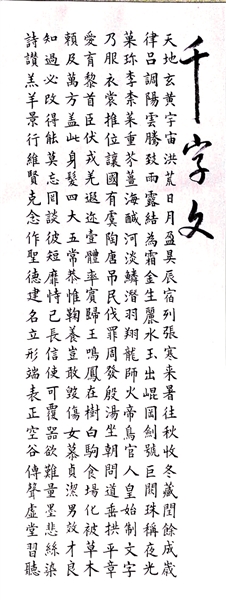 千字文
天地玄黃宇宙洪荒日月盈昃辰宿列張寒来暑往秋收冬藏閏餘成歲
律呂調陽雲騰致雨露結為霜金生麗水玉出崐岡劍號巨闕珠稱夜光
菓珍李柰菜重芥薑海醎河淡鱗潛羽翔龍師火帝鳥官人皇始制文字
乃服衣裳推位讓國有虞陶唐吊民伐罪周發殷湯坐朝問道垂拱平章
愛育黎首臣伏戎羌遐迩壹體率賓歸王鳴鳳在樹白駒食場化被草木
賴及萬方盖此身髮四大五常恭惟鞠養豈敢毀傷女慕貞潔男效才良
知過必改得能莫忘罔談彼短靡恃己長信使可覆器欲難量墨悲絲染
詩讚羔羊景行維賢克念作聖德建名立形端表正空谷傳聲虛堂習聽